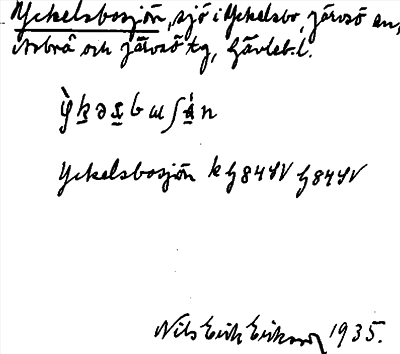 Yckelsbosjön, sjö i Yckelsbo, Järvsö sn,
Arbrå och Järvsö tg, Gävleb. l.
Yckelsbosjön k G84SV G84SV
Nils Erik Eriksson 1935.